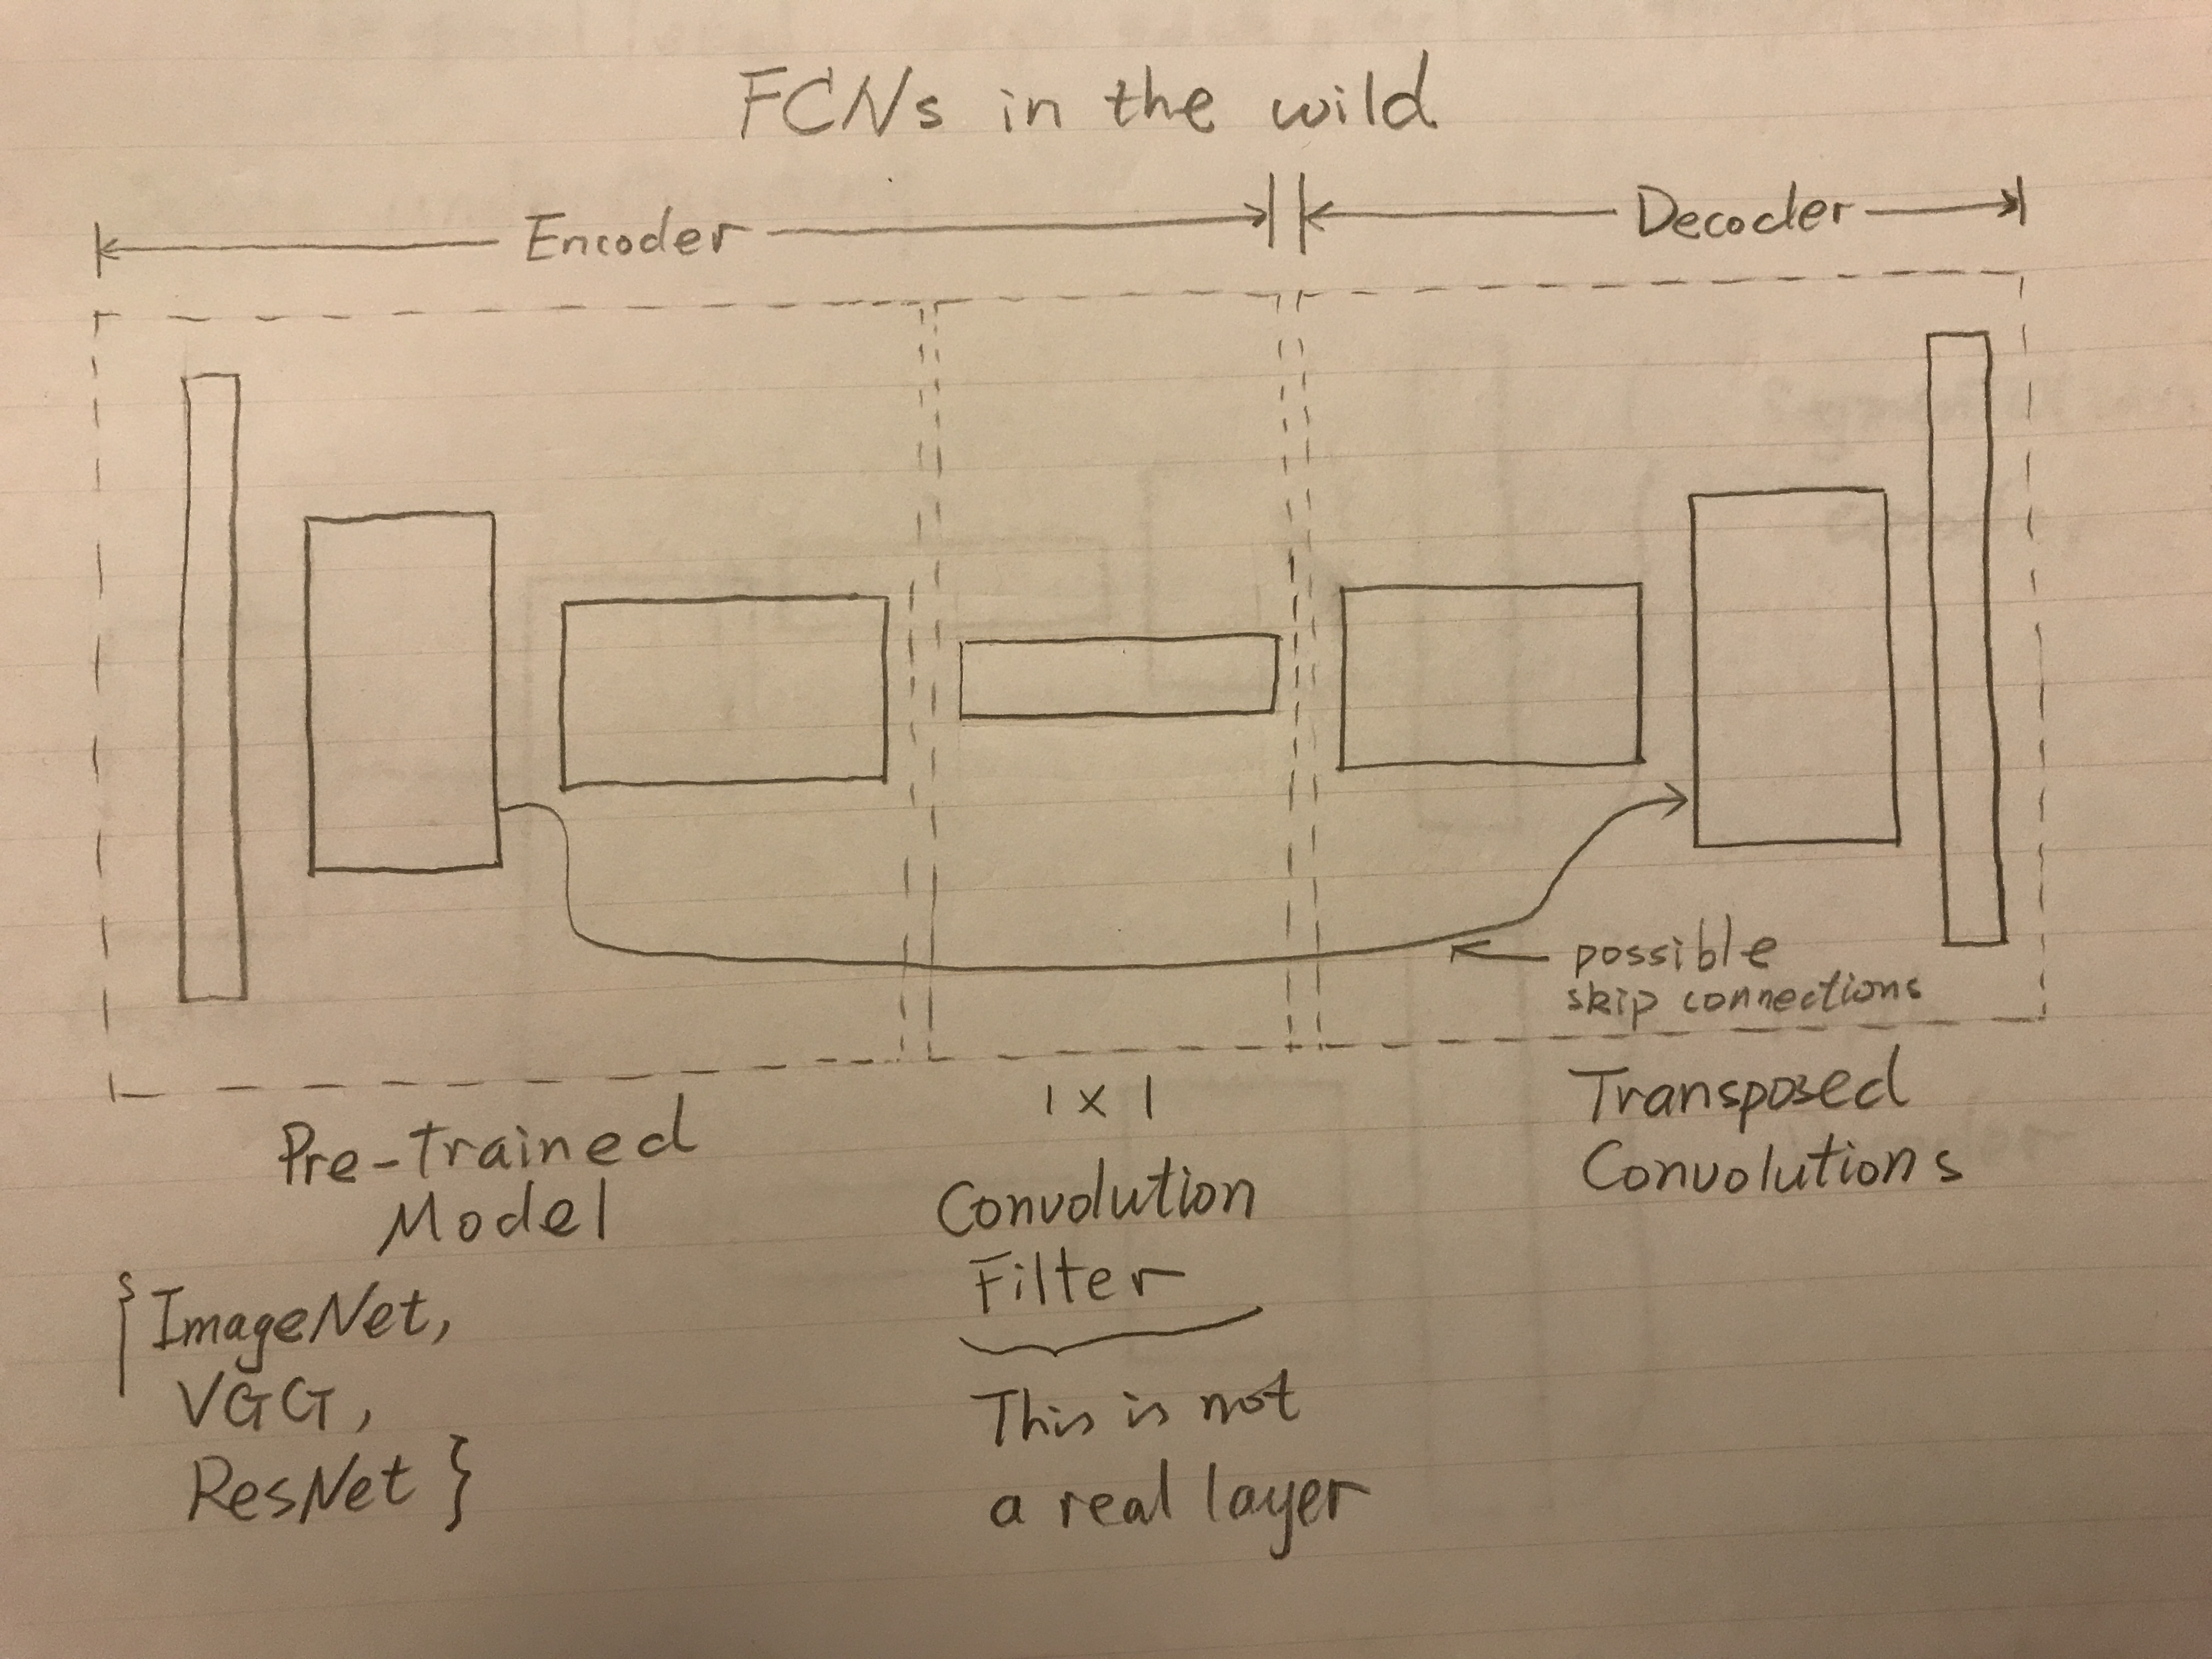 FCNs in the wild
Encoder
Decoder
possible
skip connections
Pre-trained
Model
{ImageNet,
VGG,
ResNet}
1 x 1
Convolution
Filter
This is not
a real layer
Transposed
Convolutions